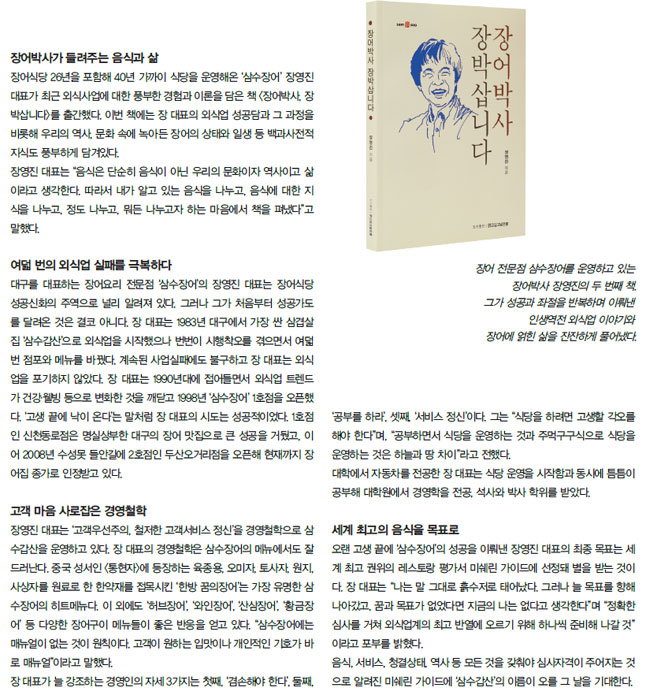 장어박사가 들려주는 음식과 삶
장어식당 26년을 포함해 40년 가까이 식당을 운영해온 '삼수장어' 장영진
대표가 최근 외식사업에 대한 풍부한 경험과 이론을 담은 책 〈장어박사, 장
박삽니다〉를 출간했다. 이번 책에는 장 대표의 외식업 성공담과 그 과정을
비롯해 우리의 역사, 문화 속에 녹아든 장어의 상태와 일생 등 백과사전적
지식도 풍부하게 담겨있다.
장영진 대표는 "음식은 단순히 음식이 아닌 우리의 문화이자 역사이고 삶
이라고 생각한다. 따라서 내가 알고 있는 음식을 나누고, 음식에 대한 지
식을 나누고, 정도 나누고, 뭐든 나누고자 하는 마음에서 책을 펴냈다"고
말했다.
여덟 번의 외식업 실패를 극복하다
대구를 대표하는 장어요리 전문점 '삼수장어'의 장영진 대표는 장어식당
성공신화의 주역으로 널리 알려져 있다. 그러나 그가 처음부터 성공가도
를 달려온 것은 결코 아니다. 장 대표는 1983년 대구에서 가장 싼 삼겹살
집 '삼수갑산'으로 외식업을 시작했으나 번번이 시행착오를 겪으면서 여덟
번 점포와 메뉴를 바꿨다. 계속된 사업실패에도 불구하고 장 대표는 외식
업을 포기하지 않았다. 장 대표는 1990년대에 접어들면서 외식업 트렌드
가 건강·웰빙 등으로 변화한 것을 깨닫고 1998년 '삼수장어' 1호점을 오픈했
다. '고생 끝에 낙이 온다'는 말처럼 장 대표의 시도는 성공적이었다. 1호점
인 신천동로점은 명실상부한 대구의 장어 맛집으로 큰 성공을 거뒀고, 이
어 2008년 수성못 들안길에 2호점인 두산오거리점을 오픈해 현재까지 장
어집 종가로 인정받고 있다.
고객 마음 사로잡은 경영철학
장영진 대표는 '고객우선주의, 철저한 고객서비스 정신'을 경영철학으로 삼
수갑산을 운영하고 있다. 장 대표의 경영철학은 삼수장어의 메뉴에서도 잘
드러난다. 중국 성서인 〈통현자〉에 등장하는 육종용, 오미자, 토사자, 원지,
사상자를 원료로 한 한약재를 접목시킨 '한방 꿈의장어'는 가장 유명한 삼
수장어의 히트메뉴다. 이 외에도 '허브장어', '와인장어', '산삼장어', '황금장
어' 등 다양한 장어구이 메뉴들이 좋은 반응을 얻고 있다. "삼수장어에는
매뉴얼이 없는 것이 원칙이다. 고객이 원하는 입맛이나 개인적인 기호가 바
로 매뉴얼"이라고 말했다.
장 대표가 늘 강조하는 경영인의 자세 3가지는 첫째, '겸손해야 한다', 둘째,
장어박사 장박삽니다
장어박사
장박삽니다
장어 전문점 삼수장어를 운영하고 있는
장어박사 장영진의 두 번째 책.
그가 성공과 좌절을 반복하며 이뤄낸
인생역전 외식업 이야기와
장어에 얽힌 삶을 진진하게 풀어냈다.
'공부를 하라', 셋째, '서비스 정신'이다. 그는 "식당을 하려면 고생할 각오를
해야 한다"며, "공부하면서 식당을 운영하는 것과 주먹구구식으로 식당을
운영하는 것은 하늘과 땅 차이"라고 전했다.
대학에서 자동차를 전공한 장 대표는 식당 운영을 시작함과 동시에 틈틈이
공부해 대학원에서 경영학을 전공, 석사와 박사 학위를 받았다.
세계 최고의 음식을 목표로
오랜 고생 끝에 '삼수장어'의 성공을 이뤄낸 장영진 대표의 최종 목표는 세
계 최고 권위의 레스토랑 평가서 미쉐린 가이드에 선정돼 별을 받는 것이
다. 장 대표는 "나는 말 그대로 흙수저로 태어났다. 그러나 늘 목표를 향해
나아갔고, 꿈과 목표가 없었다면 지금의 나는 없다고 생각한다"며 "정확한
심사를 거쳐 외식업계의 최고 반열에 오르기 위해 하나씩 준비해 나갈 것"
이라고 포부를 밝혔다.
음식, 서비스, 청결상태, 역사 등 모든 것을 갖춰야 심사자격이 주어지는 것
으로 알려진 미쉐린 가이드에 '삼수갑산'의 이름이 오를 그 날을 기대한다.